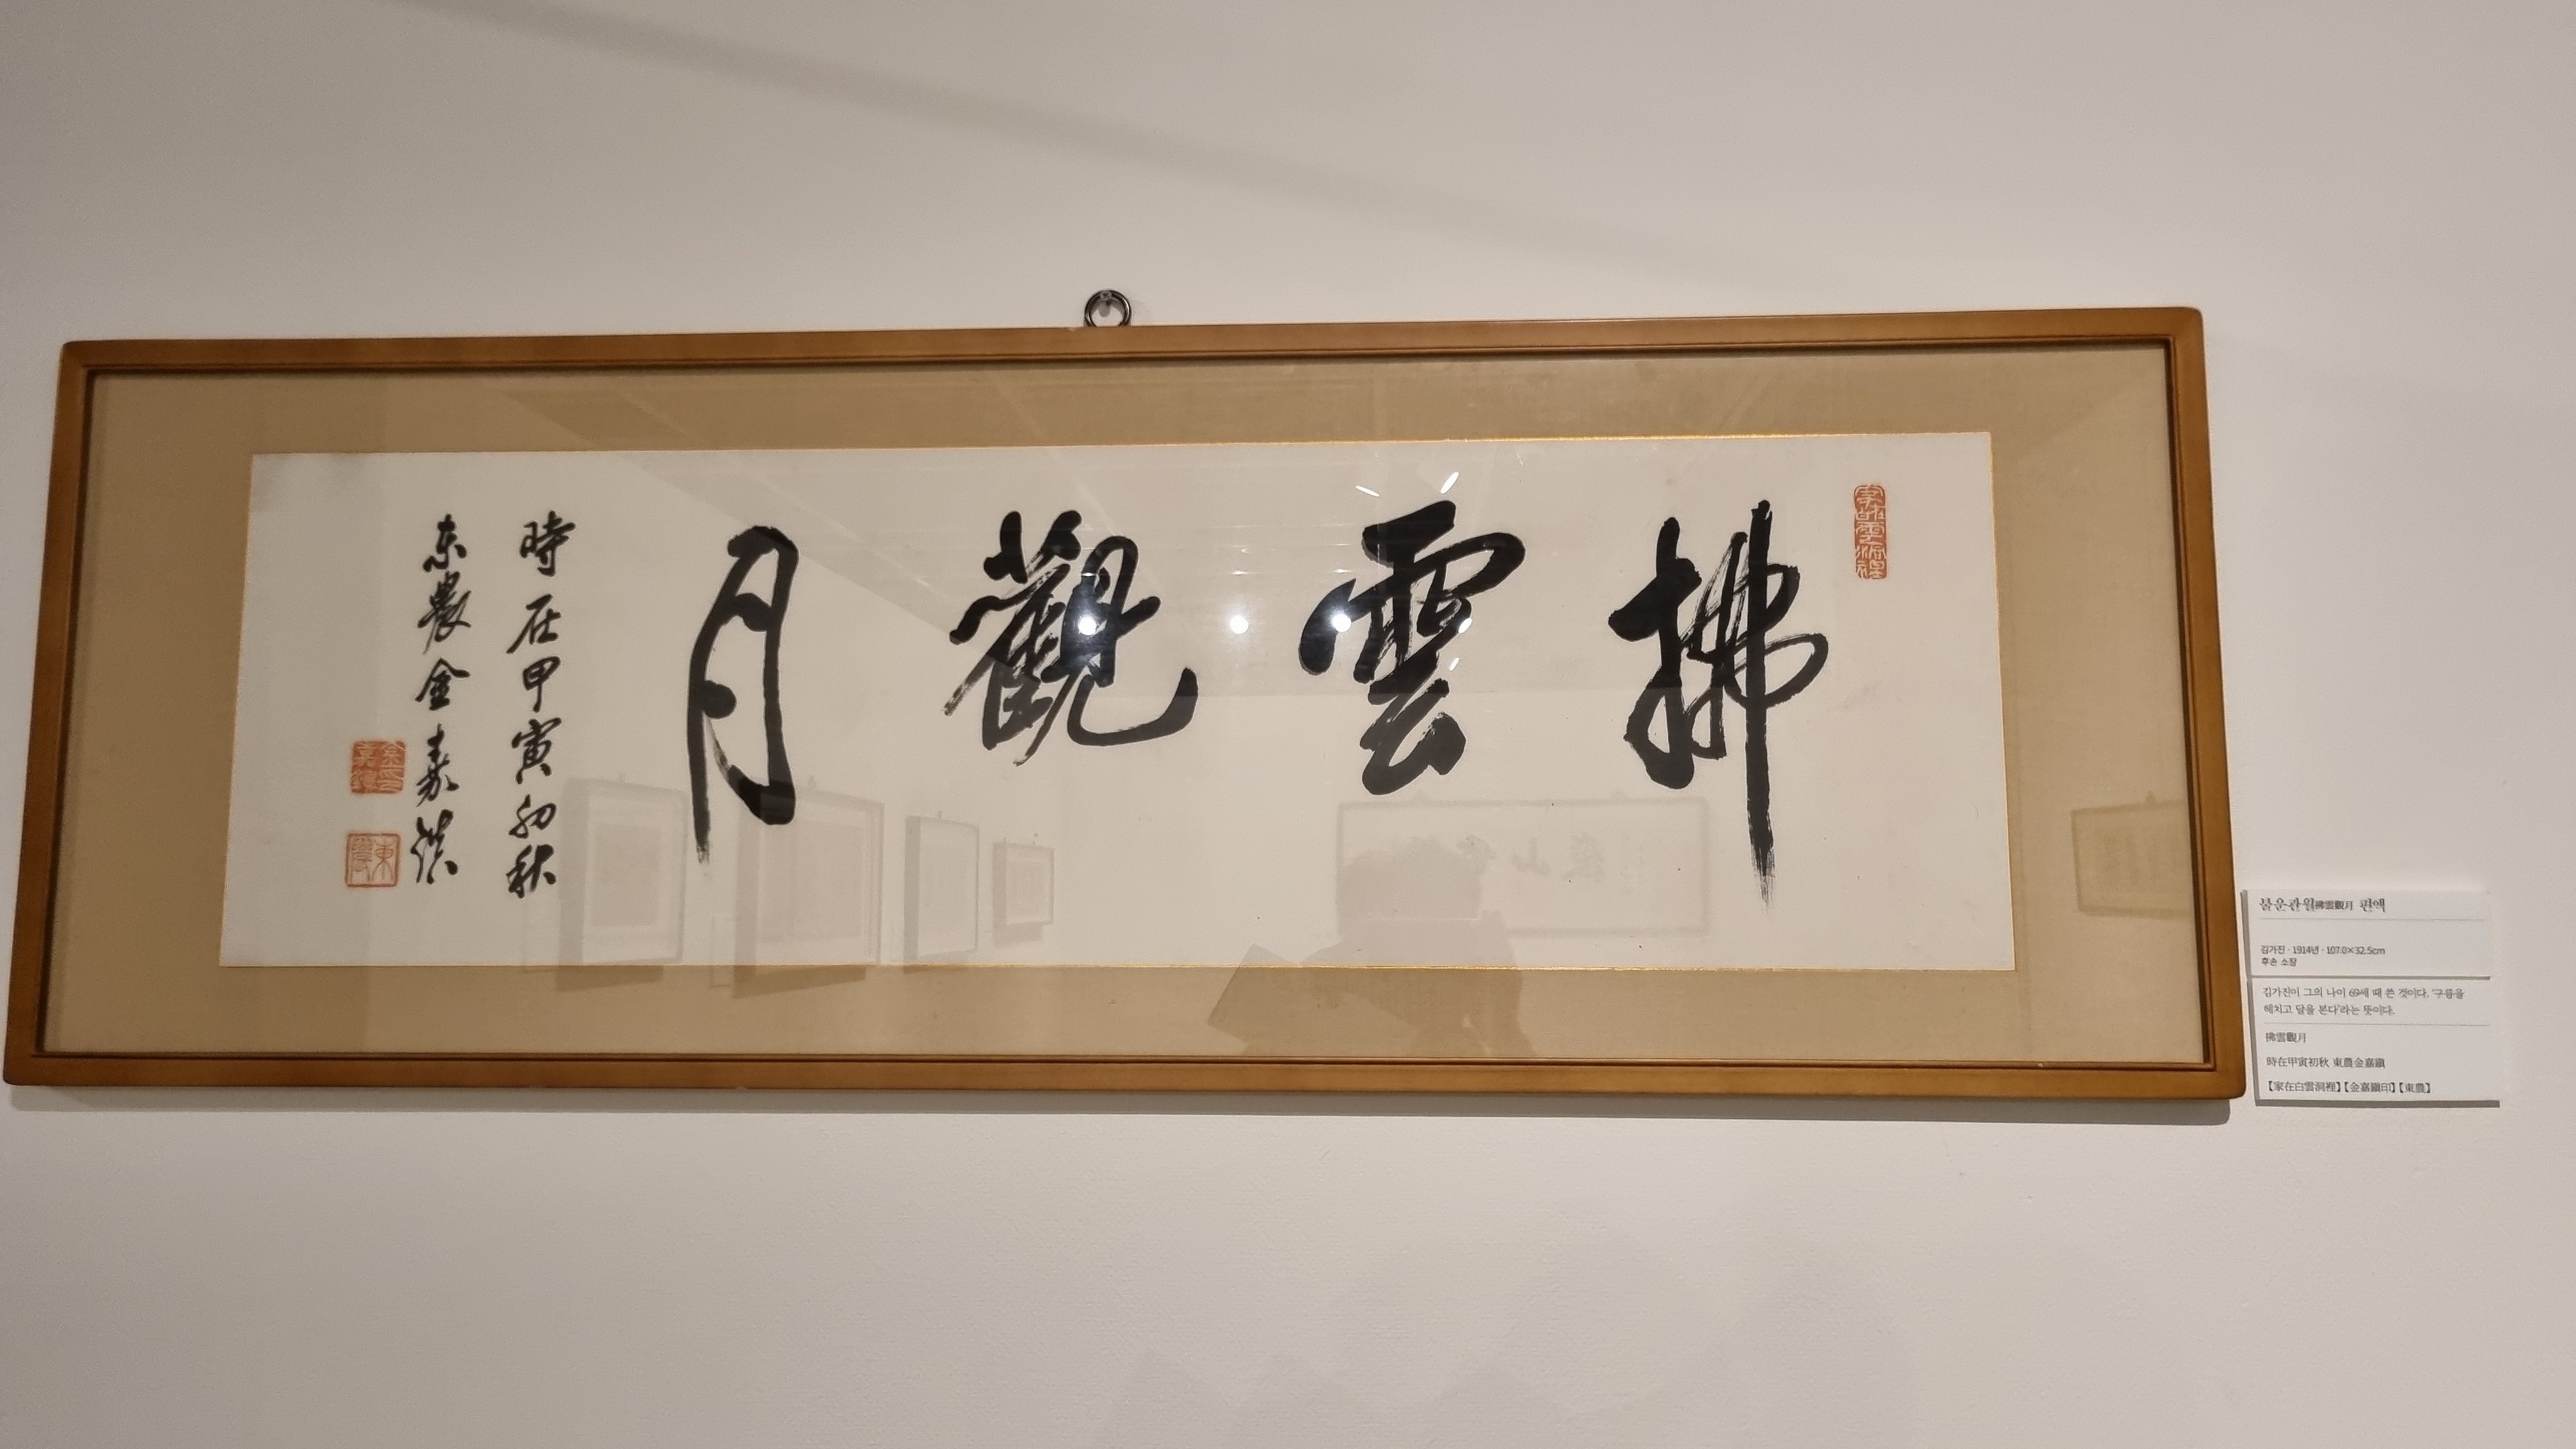 拂雲觀月
時在甲寅初秋
東農金嘉鎮
家在白雲洞裡
金嘉鎭印
東農
불운관월拂雲觀月 편액
김가진 · 1914년 · 107.0×32.5cm
후손 소장
김가진이 그의 나이 69세 때 쓴 것이다. '구름을
헤치고 달을 본다'라는 뜻이다.
拂雲觀月
時在甲寅初秋 東農金嘉鎭
【家在白雲洞裡】【金嘉鎭印】【東農】